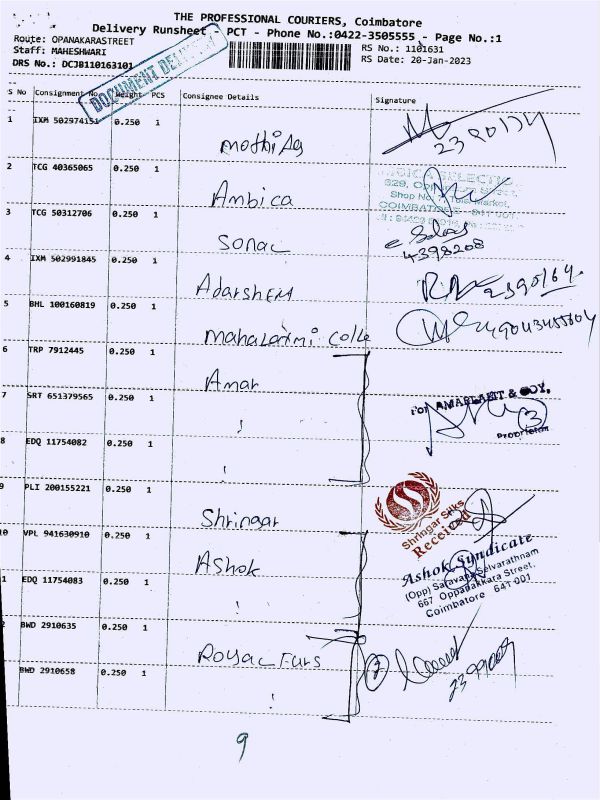 THE PROFESSIONAL COURIERS, Coimbatore
Delivery Runsheet - PCT - Phone No.:0422-3505555 - Page No.:1
Route: OPANAKARASTREET
RS No.: 1101631
Staff: MAHESHWARI
RS Date: 20-Jan-2023
DRS No.: DCJB110163101
DOCUMENT DELIVERY
S No Consignment No. Weight PCS Consignee Details Signature
1 IXM 502974151 0.250 1 mothi Ag
2390174
2 TCG 40365065 0.250 1 Ambica
SELECTIO
329, Street,
Shop No. Market,
COIMBATORE 641 001.
3 TCG 50312706 0.250 1 Sonac
4398208
4 IXM 502991845 0.250 1 Adarshem
2390164.
5 BHL 100160819 0.250 1 mahalaxmi Colle
6 TRP 7912445 0.250 1 Amar
7 SRT 651379565 0.250 1 !
For AMARJAKIT & COY,
3
Proprietor
8 EDQ 11754082 0.250 1 !
9 PLI 200155221 0.250 1 Shringar
Shringar Silks
Received
10 VPL 941630910 0.250 1 Ashok
Ashok Syndicate
(Opp) Saravana Selvarathnam
667 Oppanakkara Street,
Coimbatore 641-001
1 EDQ 11754083 0.250 1 !
2 BWD 2910635 0.250 1 Royal Furs
2
BWD 2910658 0.250 1 !
9